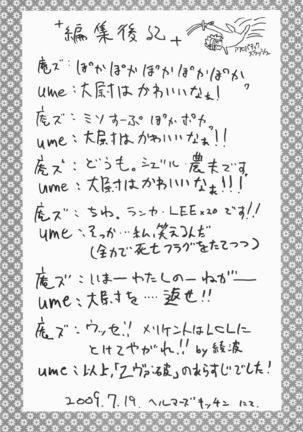 +編集後記+
庵ズ:ぽかぽかぽかぽかぽか
ume:大尉はかわいいなぁ!
庵ズ:ミソすーぷぽかぽか
ume:大尉はかわいいなぁ!!
庵ズ:どうも。シゲル・農夫です。
ume:大尉はかわいいなぁ!!!
庵ズ:ちわ。ランカ・LEE×20です!!
ume:そっか…私、笑えるんだ
(全力で死亡フラグをたてつつ)
庵ズ:いまーわたしのーねがー
ume:大尉を…返せ!!
庵ズ:ウッセ!!メリケントはLCLに
とけてやがれ!! by綾波
ume:以上、「ヱヴァ:破」のあらすじでした!
2009.7.19. ヘルマーズキッチン にて。